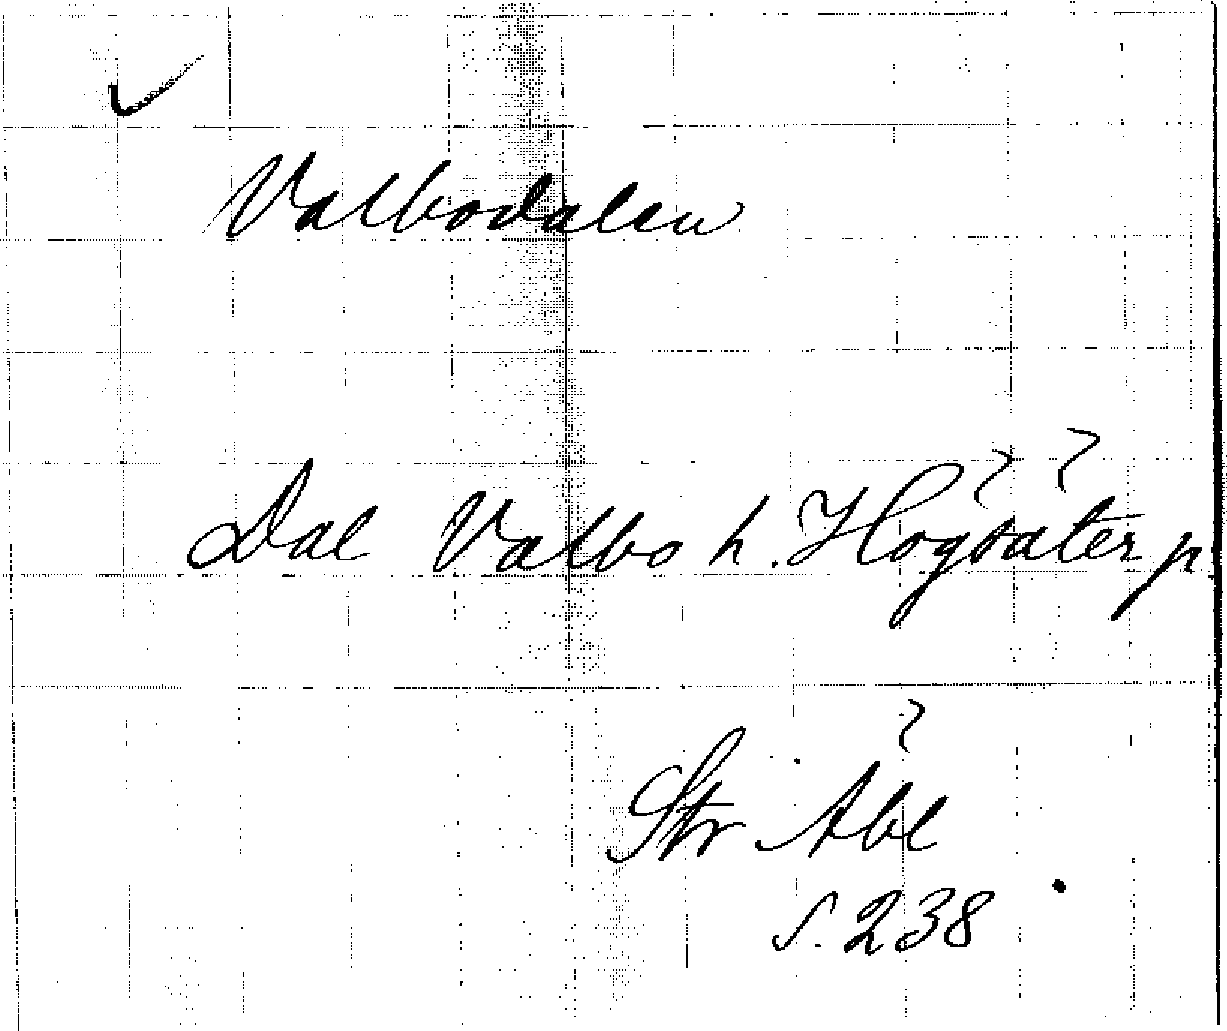 Valbodalen
Dal Valbo h. Högsäter p.
Str Åbl
s. 238